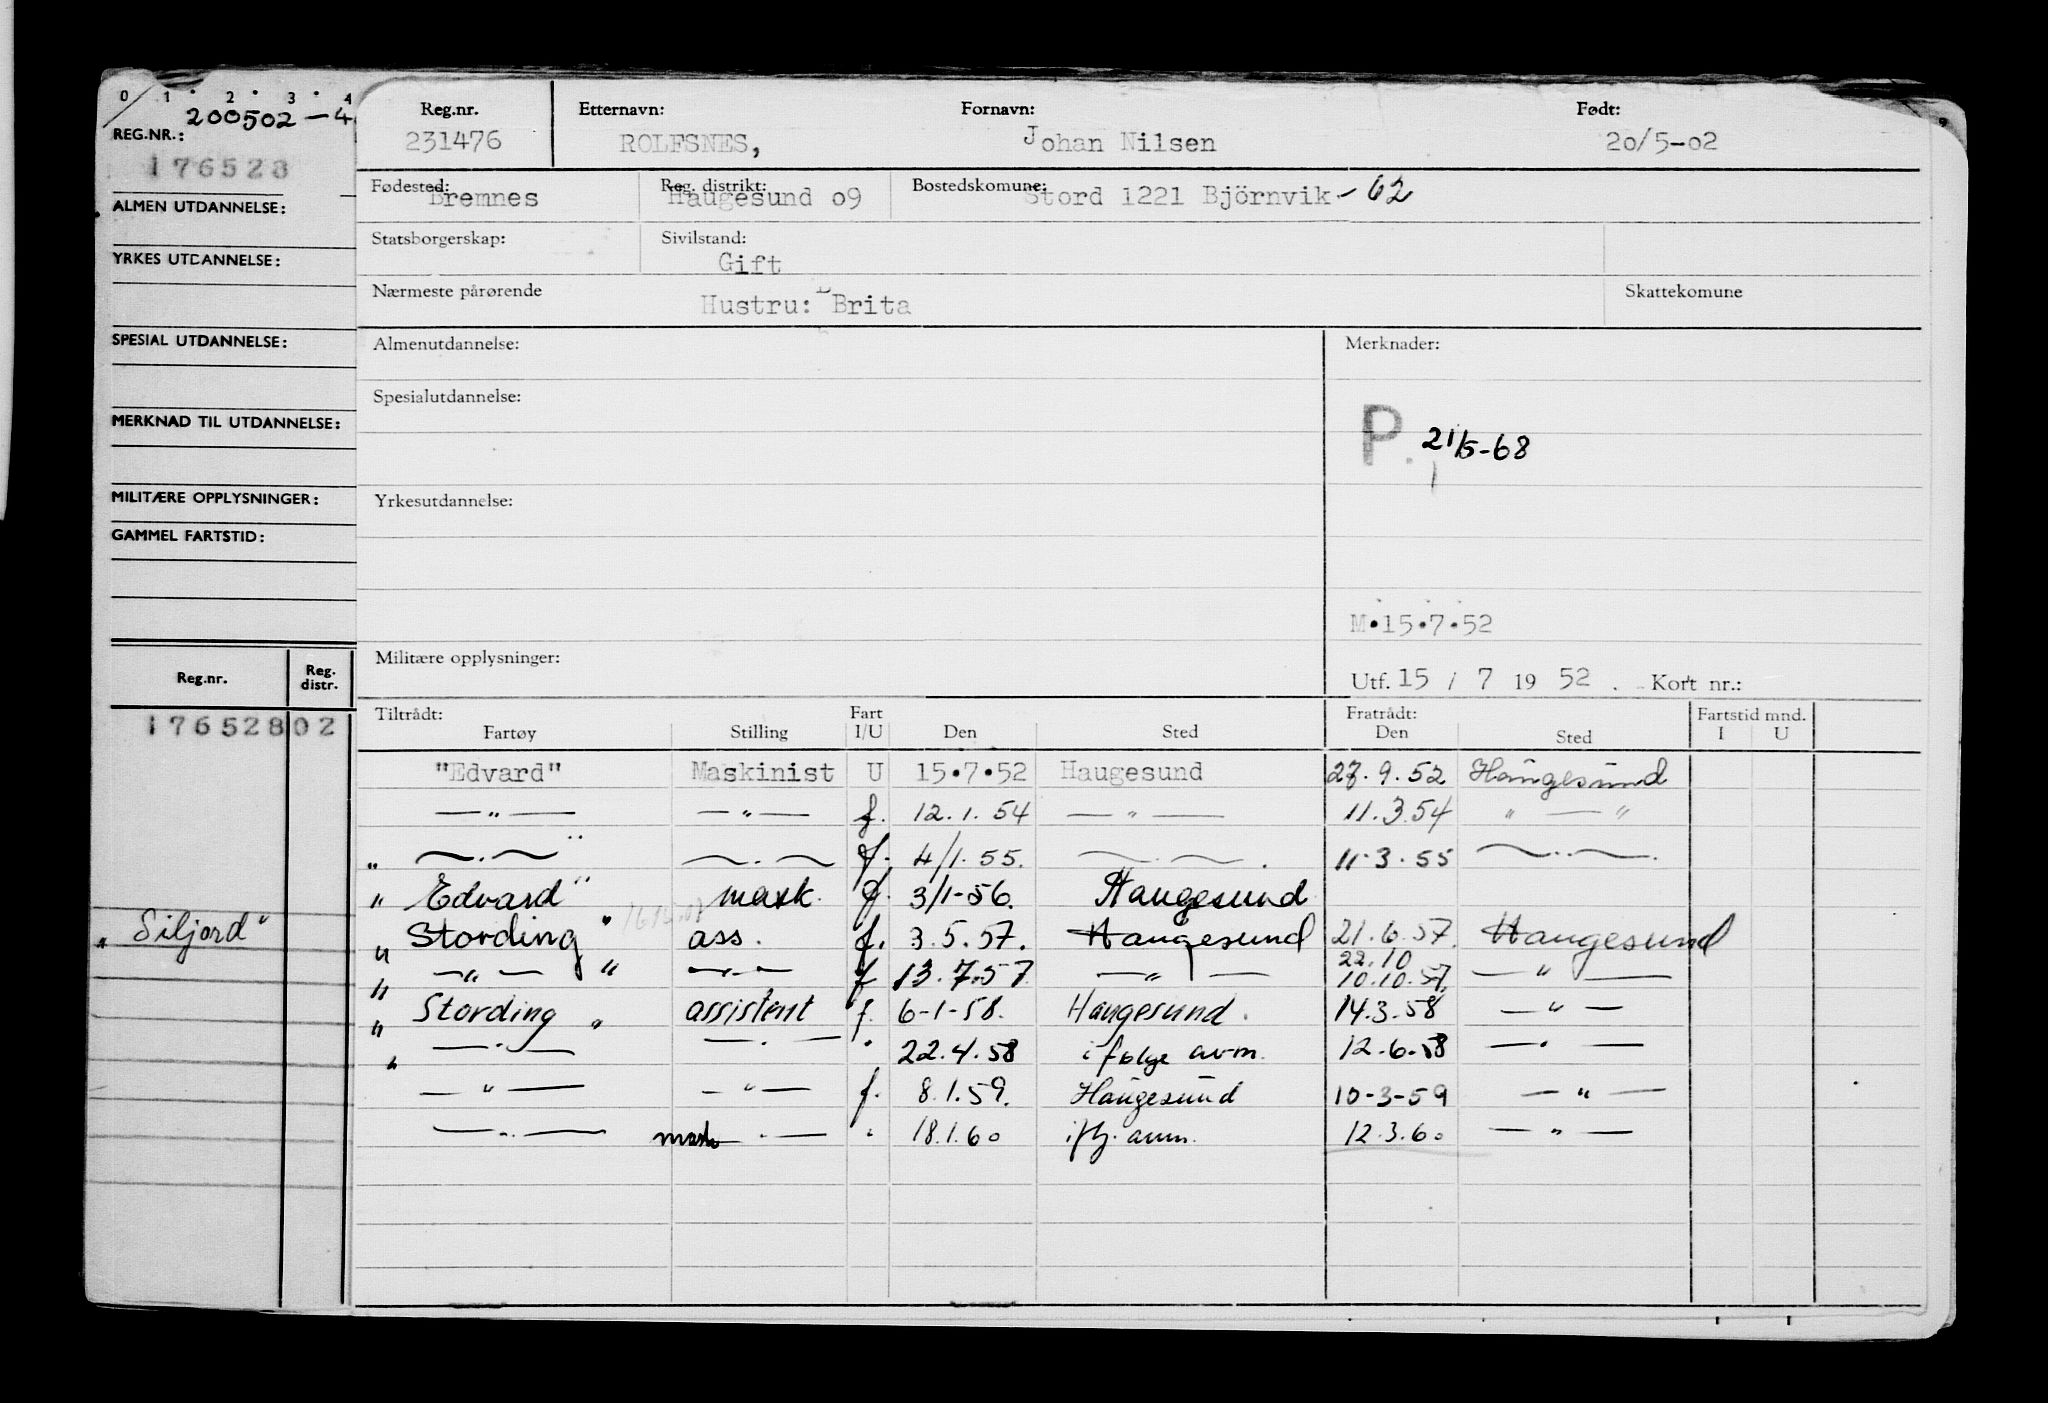 0 1 2 3 4
200502-4
REG.NR.:
176528
ALMEN UTDANNELSE:
YRKES UTDANNELSE:
SPESIAL UTDANNELSE:
MERKNAD TIL UTDANNELSE:
MILITÆRE OPPLYSNINGER:
GAMMEL FARTSTID:
Reg.nr. Reg. distr.
176528 02
"Siljord"
Reg.nr. Etternavn: Fornavn: Født:
231476 ROLFSNES, Johan Nilsen 20/5-02
Fødested: Reg. distrikt: Bostedskomune:
Bremnes Haugesund 09 Stord 1221 Björnvik - 62
Statsborgerskap: Sivilstand:
Gift
Nærmeste pårørende Skattekomune
Hustru: Brita
Almenutdannelse: Merknader:
Spesialutdannelse:
P. 21/5-68
Yrkesutdannelse:
M.15.7.52
Militære opplysninger:
Utf. 15 / 7 19 52. Kort nr.:
Tiltrådt: Fart Fratrådt: Fartstid mnd.
Fartøy Stilling I/U Den Sted Den Sted I U
"Edvard" Maskinist U 15.7.52 Haugesund 27.9.52 Haugesund
—"— —"— f. 12.1.54 —"— 11.3.54 " — "
" —.—" —.— f. 4/1.55. —.—. 11.3.55 —..—.
" Edvard" mask. f. 3/1-56. Haugesund
" Stording" ass. f. 3.5.57. Haugesund 21.6.57. Haugesund
" —"— " —"— f 13.7.57 —"— 22.10 10.10.57. —"—
" Stording " assistent f. 6-1-58. Haugesund. 14.3.58 —"—
" —.— —.— " 22.4.58 i følge avm. 12.6.58 —"—
—"— —"— f. 8.1.59. Haugesund 10-3-59 —"—
—"— mask —.— " 18.1.60 ifg. avm. 12.3.60 —"—